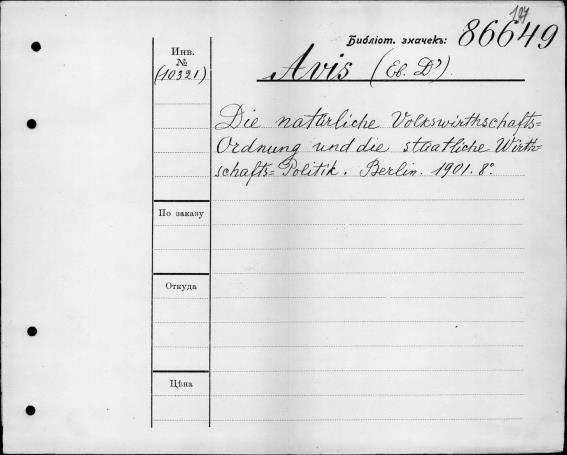 127
Библіот. значекъ: 86649
Инв.
№
(10321)
Avis (Eb. D').
Die natürliche Volkswirthschafts=
Ordnung und die staatliche Wirth=
schafts=Politik. Berlin. 1901. 8°.
По заказу
Откуда
Цѣна